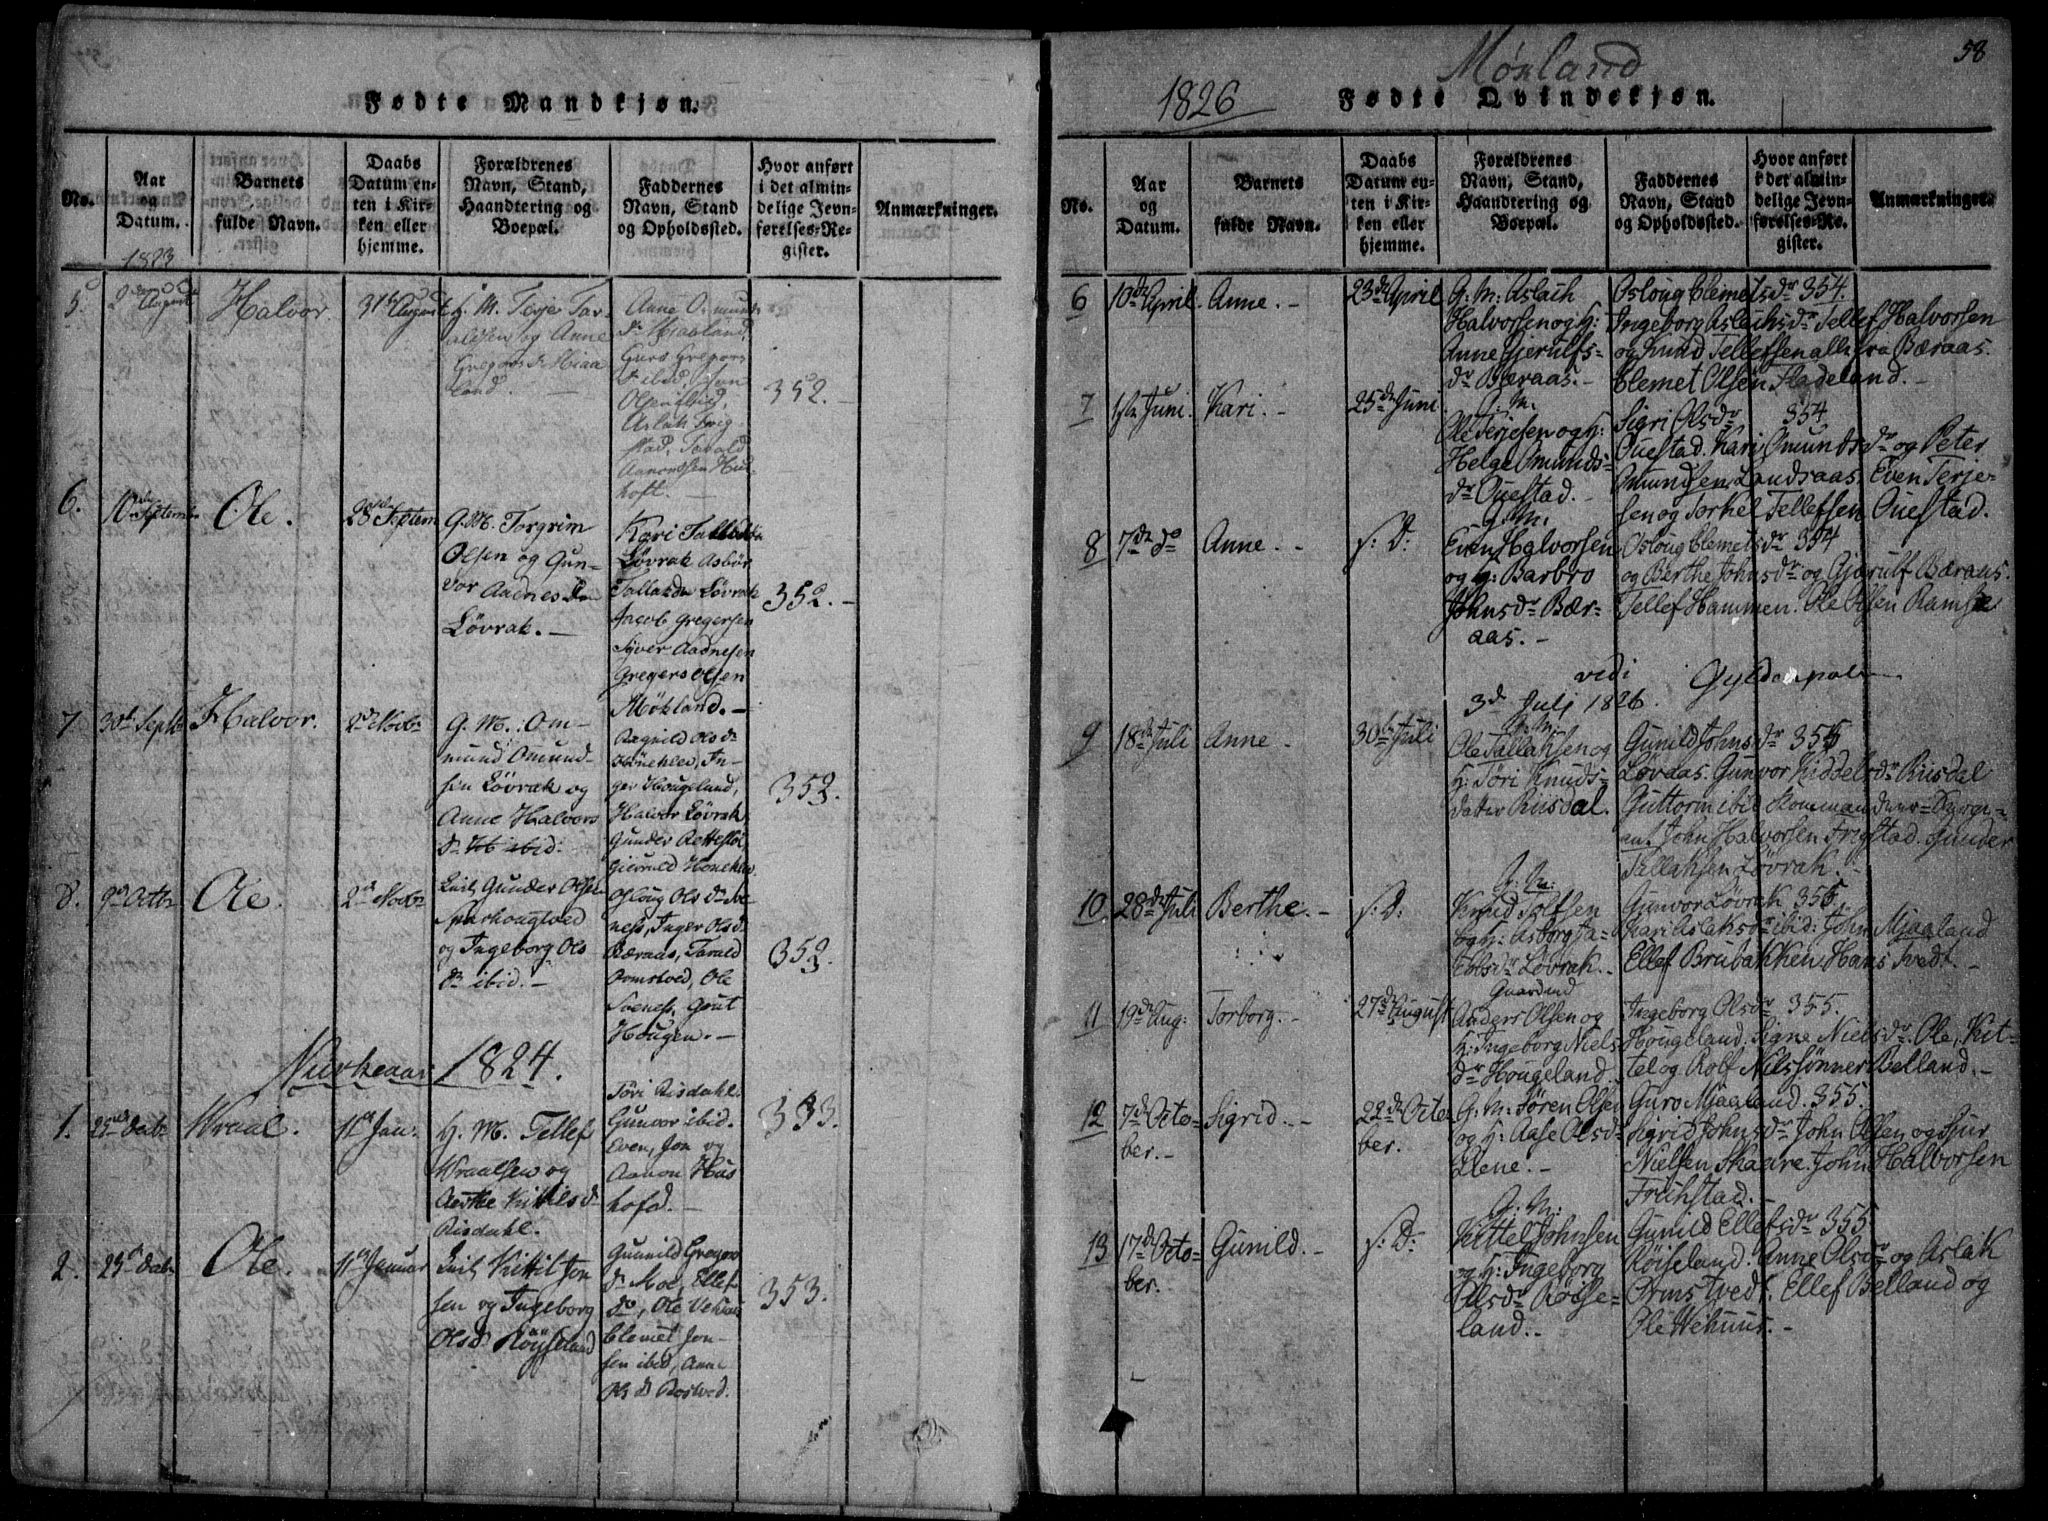 Fødte Mandkjøn.
No.
Aar og Datum.
Barnets fulde Navn.
Daabs Datum enten i Kirken eller hjemme.
Forældrenes Navn, Stand, Haandtering og Boepæl.
Faddernes Navn, Stand og Opholdssted.
Hvor anført i det almindelige Jevnførelses-Register.
Anmærkninger.
1823
5.
2 August
Halvor
31 August
G. M. Terje Tar-
aldsen og Anne
Gregors dr Miaa
land.
Anne O. munds
dr Mjaaland,
Guro Gregors
dr ibid, Jon
Aslak Frig-
stad, Tarald
352.
6.
10de Septembr
Ole.
28de Septem
G. M. Torgrim
Olsen og Gun-
vor Aadnes dr
Løvrak.
Kari Tallaks
Løvrak Asbør
Tallaksdr Løvrak
Jacob Gregersen
Syver Aadnesen
Gregers Olsen
Mökland.
352.
7.
30te Septr
Halvor.
2d Nobr
G. M. Om-
mund Omund-
sen Løvrak og
Anne Halvors
dr ibid.
Ragnild Ols dr
Hönehlen, In-
ger Hougeland,
Halvor Løvrak
Gunder
Hönehlen
352.
8.
9de Octbr
Ole.
2d Nobr
Gunder Olsen
Sparhougtved
og Ingeborg Ols
dr ibid.
Osloug Ols dr Sve
ness, Inger Ols d
Bæraas, Tarald
Ormstved, Ole
Svenes, Gout
Hougen.
352.
Nÿerkeaar 1824.
1.
Wraal.
11te Jan.
G. M. Tellef
Wraalsen og
Kittels d
Risdahl.
Töri Risdahl.
Gunvor ibid.
Even, Jon og
Aanon Hus
hofd.
353.
2.
Ole.
11te Januar
Kittil Jon
sen og Ingeborg
Olsd Röÿseland
Gunnild Gregors
dr Moe, Ellef
do, Ole Vehuus
Clemet Jon-
sen ibid, Anne
Ols d Rostved.
353.
Møxland
58
1826
Fødte Qvindekjøn.
No.
Aar og Datum.
Barnets fulde Navn.
Daabs Datum enten i Kirken eller hjemme.
Forældrenes Navn, Stand, Haandtering og Boepæl.
Faddernes Navn, Stand og Opholdssted.
Hvor anført i det almindelige Jevnførelses-Register.
Anmærkninger.
6
10de April
Anne.
23de April
G: M: Aslach
Halvorsen og H:
Anne Gjerulfs-
dr Bæraas.
Osloug Clemetsdr 354.
Ingeborg Aslachsdr Tellef Halvorsen
og Knud Tellefsen alle fra Bæraas.
Clemet Olsen Fladeland.
7
1ste Juni.
Kari.
25de Juni
G. M.
Ole Terjesen og H:
Helge Omunds-
dr Ouestad.
Sigri Olsdr 354
Ouestad. Kari Omundsdr og Peter
Omundsen Landsaas. Even Terje-
sen og Torkel Tellefsen Ouestad.
8
7de do
Anne.
s: D:
G. M.
Even Halvorsen
og H: Barbro
Johnsdr Bær-
aas.
Osloug Clemetsdr 354
og Berthe Johnsdr og Gjerulf Bæraas.
Tellef Hammen. Ole Olsen Ramse
vidi
3d Julj 1826.
Gyldenpalm
9
18de Juli
Anne.
30te Juli
G. M.
Ole Tallaksen og
H: Töri Knuds-
datter Riisdal.
Gunild Johnsdr 355
Løvaas. Gunvor Kiddelsdr Riisdal
Guttorm ibid
John Halvorsen Frigstad. Gunder
Tallaksen Løvrak.
10.
28de Juli
Berthe.
s: D:
G. M.
Knud Tolfsen
og H: Asborg Ja-
cobsdr Løvrak.
Gunvor Løvrak 355.
Kari Aslaksdr ibid: John Mjaaland
Ellef Brubakken, Hans Tvedt.
11
19de Aug:
Torborg.
27de August
Gaardmd
Anders Olsen og
H: Ingeborg Niels
dr Hougeland.
Ingeborg Olsdr 355.
Hougeland. Signe Nielsdr. Ole, Kit-
tel og Rolf Nilssønner Belland.
12
7de Octo-
ber.
Sigrid.
22de Octo-
ber.
G: M: Sören Olsen
og H: Aase Olsd-
Elene.
Guro Mjaaland. 355.
Sigrid Johnsdr John Olsen og Sjur
Nielsen Skaare. John Halvorsen
Friihstad.
13
17de Octo-
ber.
Gunild.
s: D:
G: M:
Kittel Johnsen
og H: Ingeborg
Olsdr Röise-
land.
Gunild Ellefsdr 355
Röiseland. Anne Olsdr og Aslak
Ormstvedt. Ellef Belland og
Ole Wehuus.